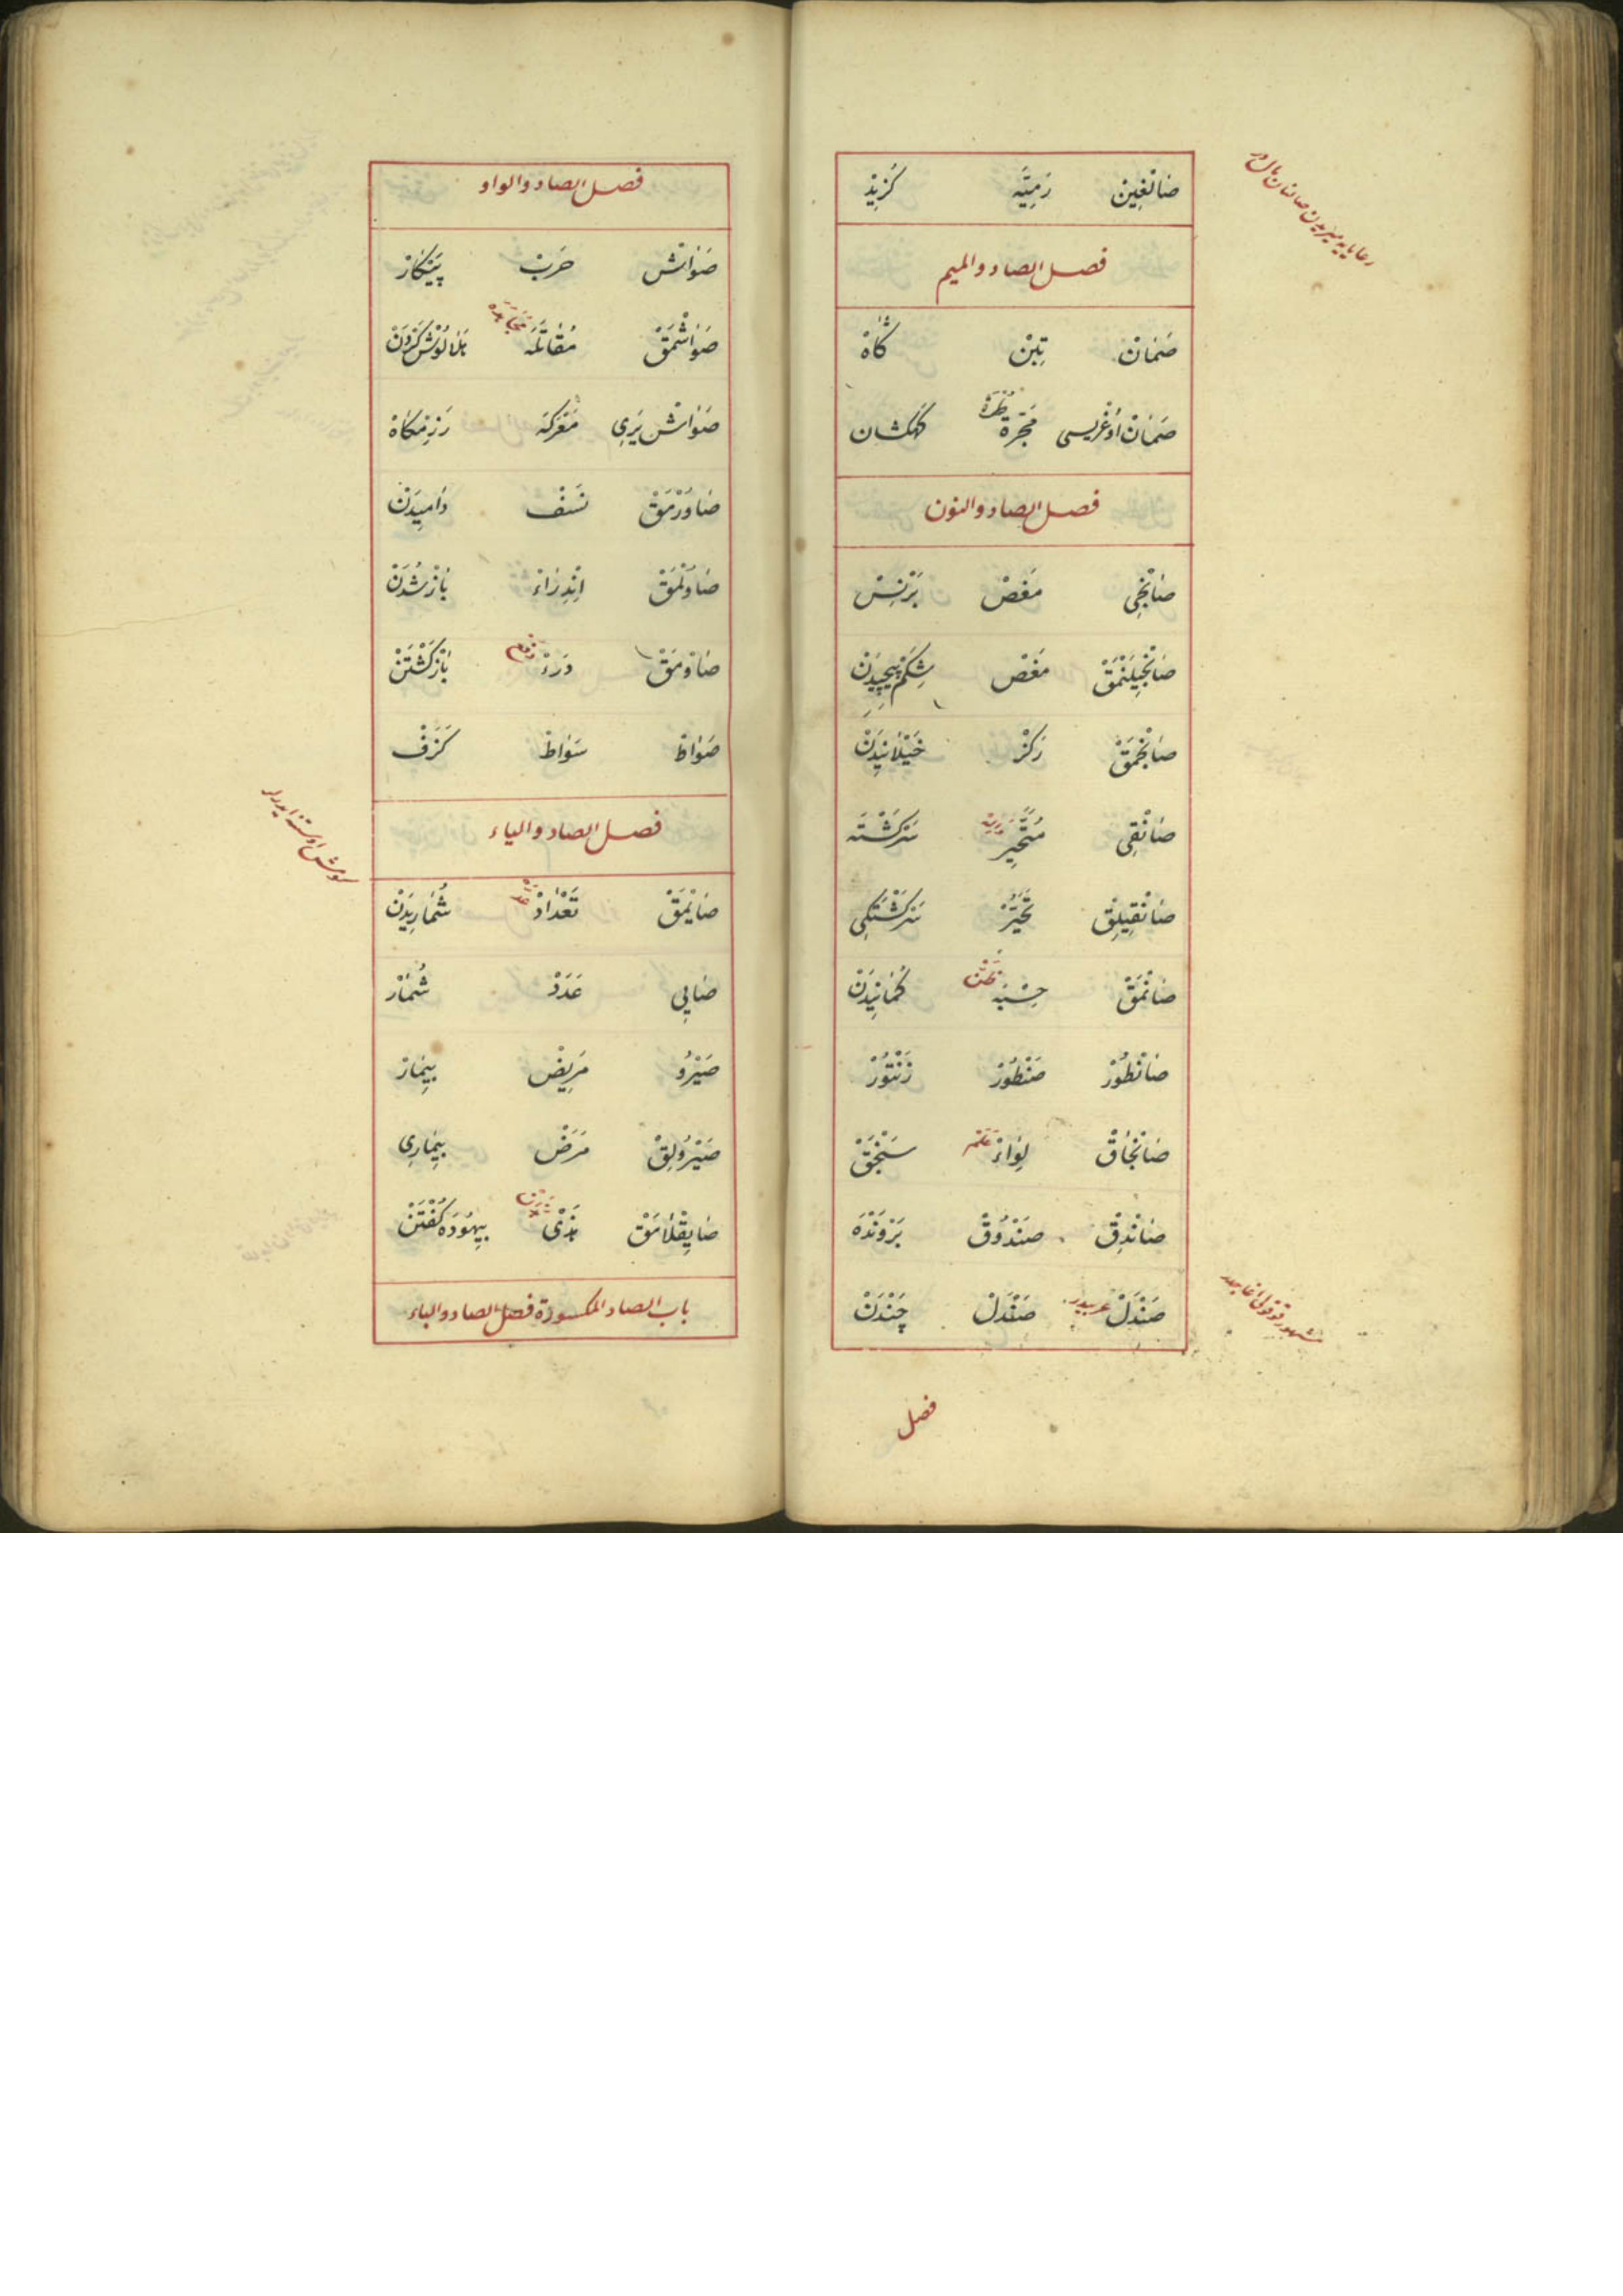 صَالْغِين رَمِيَّه كُزِيْد
فصل الصاد والميم
صَمَانْ تِبْنْ كَاهْ
صَمَانْ اُوغْرِيسى مَجَرَّة كَهكشان
فصل الصاد والنون
صَانْجِى مَغَصْ بَرْنِسْ
صَانْجِيلَنْمَقْ مَغَصْ شِكَمْ پِيچِيدَنْ
صَانْجْمَقْ رَكْزْ خَيْلَانِيدَنْ
صَانْقِى مُتَحَيِّرْ سَرْكَشْتَه
صَانْقِيلِقْ تَحَيُّرْ سَرْكَشْتَكِى
صَانْمَقْ حِسْبَه ظَنّ كُمَانِيدَنْ
صَانْطُورْ صَنْطُورْ زَنْتُورْ
صَانْجَاقْ لِوَاءْ عَلَمْ سَنْجَقْ
صَانْدِقْ صَنْدُوقْ بَرْوَنْدَه
صَنْدَلْ عربيدر صَنْدَلْ چَنْدَنْ
فصل
فصل الصاد والواو
صَوَاشْ حَرْبْ پَيْكَارْ
صَوَاشْمَقْ مُقَاتَلَه مُجَاهَدَه كَرْدَنْ
صَوَاشْ يَرِى مَعْرَكَه رَزِمْكَاهْ
صَاوُرْمَقْ نَسْفْ دَامِيدَنْ
صَاوُلْمَقْ اِنْدِرَاءْ بَازْ شُدَنْ
صَاوْمَقْ دَرَءْ بَازْ كَشْتَنْ
صَوَاطْ سَوَاطْ كَرَفْ
فصل الصاد والياء
صَايْمَقْ تَعْدَادْ عَدّ شُمَارِيدَنْ
صَايِى عَدَدْ شُمَارْ
صَيْرُو مَرِيضْ بِيمَارْ
صَيْرُولِقْ مَرَضْ بِيمَارِى
صَايِقْلَامَقْ هَذْى بِيهُودَه كُفْتَنْ
باب الصاد المكسورة فصل الصاد والباء